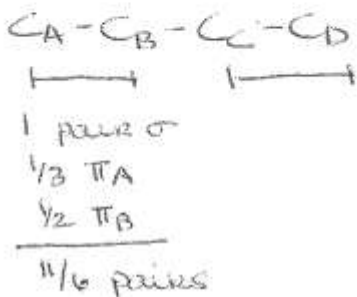 C_A - C_B - C_C - C_D
1 pair σ
1/3 π_A
1/2 π_B
11/6 pairs